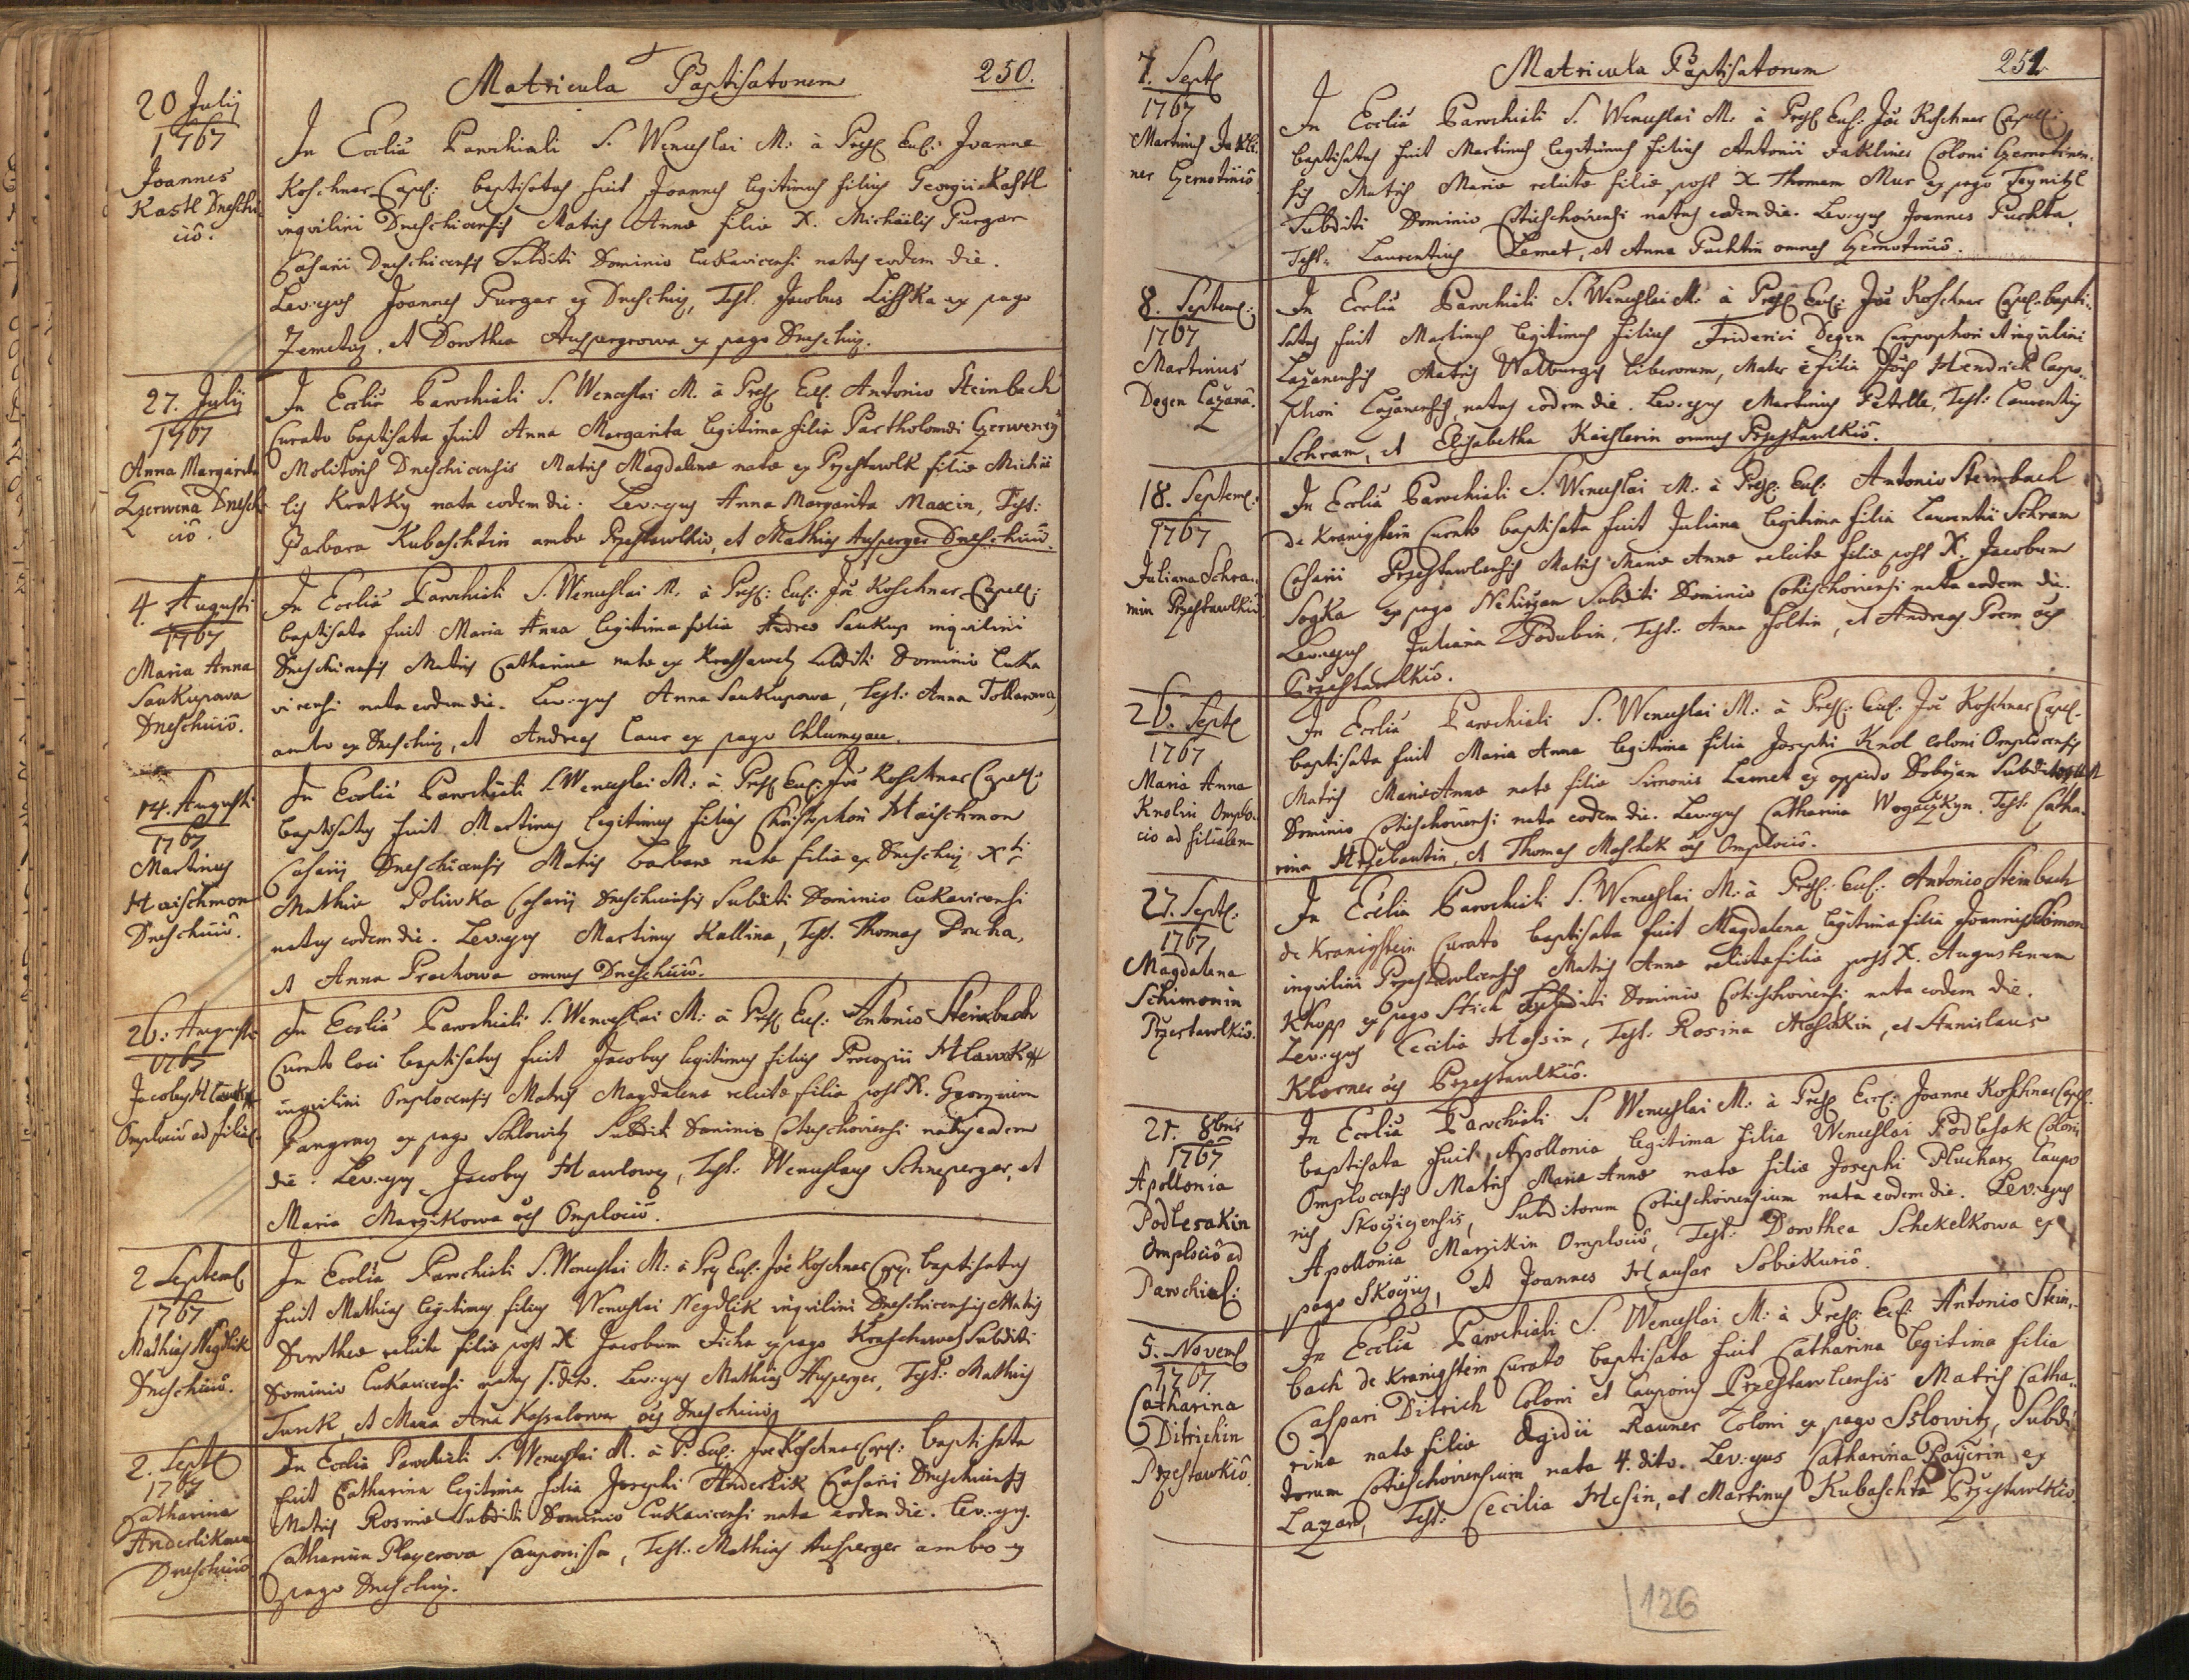 Matricula Baptisatorum
250.
20 Julij
1767
Joannes
Kastl Dneschi
ciô.
In Ecclia Parochiali S. Wenceslai M. à Presb Eccl: Joanne
Koschner Capel: baptisatus fuit Joannes legitimus filius Georgii Kastl
inqvilini Dneschicensis Matris Annæ filiæ X. Michäelis Purgar
Casarii Dneschicensis Subditi Dominio Lukavicensi natus eodem die.
Lev: qvs Joannes Purgar ex Dneschiz, Test. Jacobus Lisska ex pago
Zemetiz, et Dorothea Auspergrowa ex pago Dneschiz.
27. Julij
1767
Anna Margarita
Czerwena Dnesch
ciô.
In Ecclia Parochiali S. Wenceslai M. à Presb Eccl. Antonio Steinbach
Curato baptisata fuit Anna Margarita legitima filia Bartholomæi Czerweny
Molitoris Dneschicensis Matris Magdalenæ natæ ex Przestawlk filiæ Michæ
lis Kratky nata eodem die. Lev: qvs Anna Margarita Maxin, Test:
Barbara Kubaschtin ambæ Przestawlkiô, et Mathias Ausperger Dneschiciô.
4. Augusti
1767
Maria Anna
Saukupowa
Dneschiciô.
In Ecclia Parochiali S. Wenceslai M. à Presb: Eccl: Joê Koschner Capell:
baptisata fuit Maria Anna legitima filia Andreæ Saukup inqvilini
Dneschicensis Matris Catharinæ natæ ex Krassawetz Subditi Dominio Luka
vicensi nata eodem die. Lev: qvs Anna Saukupowa, Test: Anna Tollarowa,
ambæ ex Dneschiz, et Andreas Caur ex pago Chlumczan.
14. Augusti
1767
Martinus
Haischmon
Dneschiciô.
In Ecclia Parochiali S. Wenceslai M: à Presb Eccl: Joê Koschner Capell:
baptisatus fuit Martinus legitimus filius Christophori Haischmon
Casarij Dneschicensis Matris Barbaræ natæ filiæ ex Dneschiz Xti
Mathiæ Poliwka Casarij Dneschicensis Subditi Dominio Lukavicensi
natus eodem die. Lev: qvs Martinus Kallina, Test. Thomas Ducha,
et Anna Prachowa omnes Dneschiciô.
26: Augusti
1767
Jacobus
Omplociô ad filial:
In Ecclia Parochiali S. Wenceslai M: à Presb Eccl: Antonio Steinbach
Curato loci baptisatus fuit Jacobus legitimus filius Procopii
inqvilini Omplocensis Matris Magdalenæ relictæ filiæ post X. Georgium
Pangraz ex pago Schlowitz Subditi Dominio Cotieschoviensi natus eadem
die. Lev: qvs Jacobus Hawlowez, Test: Wenceslaus Schneperger, et
Maria Marzikowa oês Omplociô.
2 Septemb
1767
Mathias Negdlik
Dneschiciô.
In Ecclia Parochiali S. Wenceslai M: à Presb Eccl: Joê Koschner Cap. baptisatus
fuit Mathias legitimus filius Wenceslai Negdlik inqvilini Dneschicensis Matris
Dorotheæ relictæ filiæ post X Jacobum Ficha ex pago Kraschawetz Subditi
Dominio Lukavicensi natus 1. dito. Lev: qvs Mathias Ausperger, Test: Mathias
Turek, et Maria Ana Kassalowa oês Dneschiciô
2. Sept
1767
Catharina
Anderlikowa
Dneschiciô
In Ecclia Parochiali S. Wenceslai M. à P. Eccl: Joê Koschner Capel: baptisata
fuit Catharina legitima filia Josephi Anderlik Casarii Dneschicensis
Matris Rosinæ Subditi Dominio Lukavicensi nata eodem die. Lev: qvs.
Catharina Playerova Cauponissa, Test: Mathias Ausperger ambo ex
pago Dneschiz.
Matricula Baptisatorum
251.
7. Sept
1767
Martinus Jakli
ner Czernotiniô
In Ecclia Parochiali S. Wenceslai M: à Presb Eccl: Joê Koschner Capell:
baptisatus fuit Martinus legitimus filius Antonii Jakliner Coloni Czernotinen
sis Matris Mariæ relictæ filiæ post X. Thomam Mur ex pago Teynitzl
Subditi Dominio Cotieschoviensi natus eodem die. Lev: qvs Joannes Puchta,
Test: Laurentius Lemet, et Anna Puchtin omnes Czernotiniô.
8. Septemb:
1767
Martinus
Degen Lazanô.
In Ecclia Parochiali S. Wenceslai M: à Presb Eccl: Joê Koschner Capel. bapti-
satus fuit Martinus legitimus filius Friderici Degen Carpophori et inqvilini
Lazanensis Matris Walburgis liberorum, Mater è filia Jois Hendrich Carpo-
phori Lazanensis, natus eodem die. Lev: qvs Martinus Petrlle, Test: Laurentius
Schram, et Elisabetha Kaislerin omnes Przestawlkiô.
18. Septemb:
1767
Juliana Schra-
min Przestawlkiô
In Ecclia Parochiali S. Wenceslai M: à Presb: Eccl: Antonio Steinbach
de Kranigstein Curato baptisata fuit Juliana legitima filia Laurentii Schram
Casarii Przestawlcensis Matris Mariæ Annæ relictæ filiæ post X. Jacobum
Sogka ex pago Nekirzan Subditi Dominio Cotieschoviensi nata eodem die.
Lev: qvs Juliana Podubin, Test: Anna Foltin, et Andreas Prem oês
Przestawlkiô.
26. Sept
1767
Maria Anna
Knolin Omplo-
ciô ad filialem
In Ecclia Parochiali S. Wenceslai M: à Presb: Eccl: Joê Koschner Capel.
baptisata fuit Maria Anna legitima filia Josephi Knol Coloni Omplocensis
Matris Mariæ Annæ natæ filiæ Simonis Lemet ex oppido Dobrzan
Dominio Cotieschoviensi nata eodem die. Lev: qvs Catharina Wogaczkyn. Test: Catha-
rina Hrzebautin, et Thomas Maschek oês Omplociô.
27. Sept:
1767
Magdalena
Schimonin
Przestawlkiô.
In Ecclia Parochiali S. Wenceslai M: à Presb: Eccl: Antonio Steinbach
de Kranigstein Curato baptisata fuit Magdalena legitima filia Joannis Schimon
inqvilini Przestawlcensis Matris Annæ relictæ filiæ post X. Augustinum
Khopp ex pago Stich Subditi Dominio Cotieschoviensi nata eodem die.
Lev: qvs Cecilia Hessin, Test: Rosina Maschkin, et Stanislaus
Klorner oês Przestawlkiô.
21. 8bris
1767
Apollonia
Podlesakin
Omplociô ad
Parochial:
In Ecclia Parochiali S. Wenceslai M: à Presb Eccl: Joanne Koschner Capel.
baptisata fuit Apollonia legitima filia Wenceslai Podlesak Coloni
Omplocensis Matris Mariæ Annæ natæ filiæ Josephi Pluharz Caupo
nis Skoczicensis, Subditorum Cotieschoviensium nata eodem die. Lev: qvs
Apollonia Marzikin Omplociô, Test: Dorothea Schekelkowa ex
pago Skocziz, et Joannes Hausar Sobiekuriô.
5. Novemb
1767
Catharina
Ditrichin
Przestawkiô
In Ecclia Parochiali S. Wenceslai M: à Presb: Eccl: Antonio Stein-
bach de Kranigstein Curato baptisata fuit Catharina legitima filia
Caspari Ditrich Coloni et Cauponis Przestawlcensis Matris Catha-
rinæ natæ filiæ Ægidii Rauner Coloni ex pago Sslowitz, Subdi-
torum Cotieschoviensium nata 4. dito. Lev: qvs Catharina Payerin ex
Lazan, Test: Cecilia Hessin, et Martinus Kubaschta Przestawlkiô.
126